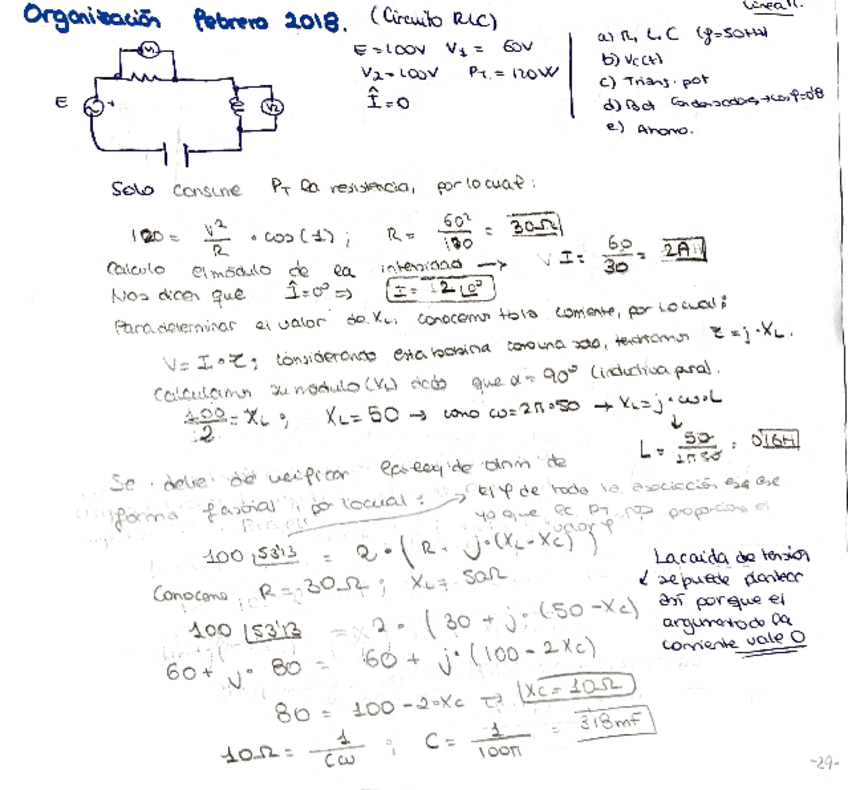 Organización febrero 2018. (Circuito RLC)
E=100V V1 = 60V
V2=100V PT = 120W
Î=0
a) R, L, C (f=50Hz)
b) Vc(t)
c) Trians. pot
d) Bat Condensadores → cosφ=0'8
e) Ahorro.
V1
E
V2
Solo consume PT la resistencia, por lo cual:
120 = V²/R · cos(1); R = 60²/120 = 30Ω
Calculo el módulo de la intensidad → I = 60/30 = 2A
Nos dicen que Î=0° ⇒ I = 2∠0°
Para determinar el valor de XL, conocemos la corriente, por lo cual:
V = I · Z; considerando esta bobina como una sola, tendramos Z = j · XL.
Calculamos su módulo (VL) dado que α = 90° (inductiva pura).
100/2 = XL; XL = 50 → como ω=2π·50 → XL = j·ω·L
L = 50/2π50 = 0'16H
Se debe de verificar la ley de ohm de
forma fasorial, por lo cual: → El φ de toda la asociación es ese
ya que la PT nos proporciona el
valor φ
100∠53'13 = 2 · (R + j·(XL-XC))
Conocemos R = 30Ω; XL = 50Ω
100∠53'13 = 2 · (30 + j·(50-Xc)
60 + j· 80 = 60 + j·(100-2Xc)
80 = 100 - 2·Xc ⇒ Xc = 10Ω
10Ω = 1/Cω; C = 1/100π = 318mF
La caida de tensión
se puede plantear
así porque el
argumento de la
corriente vale 0
-29-